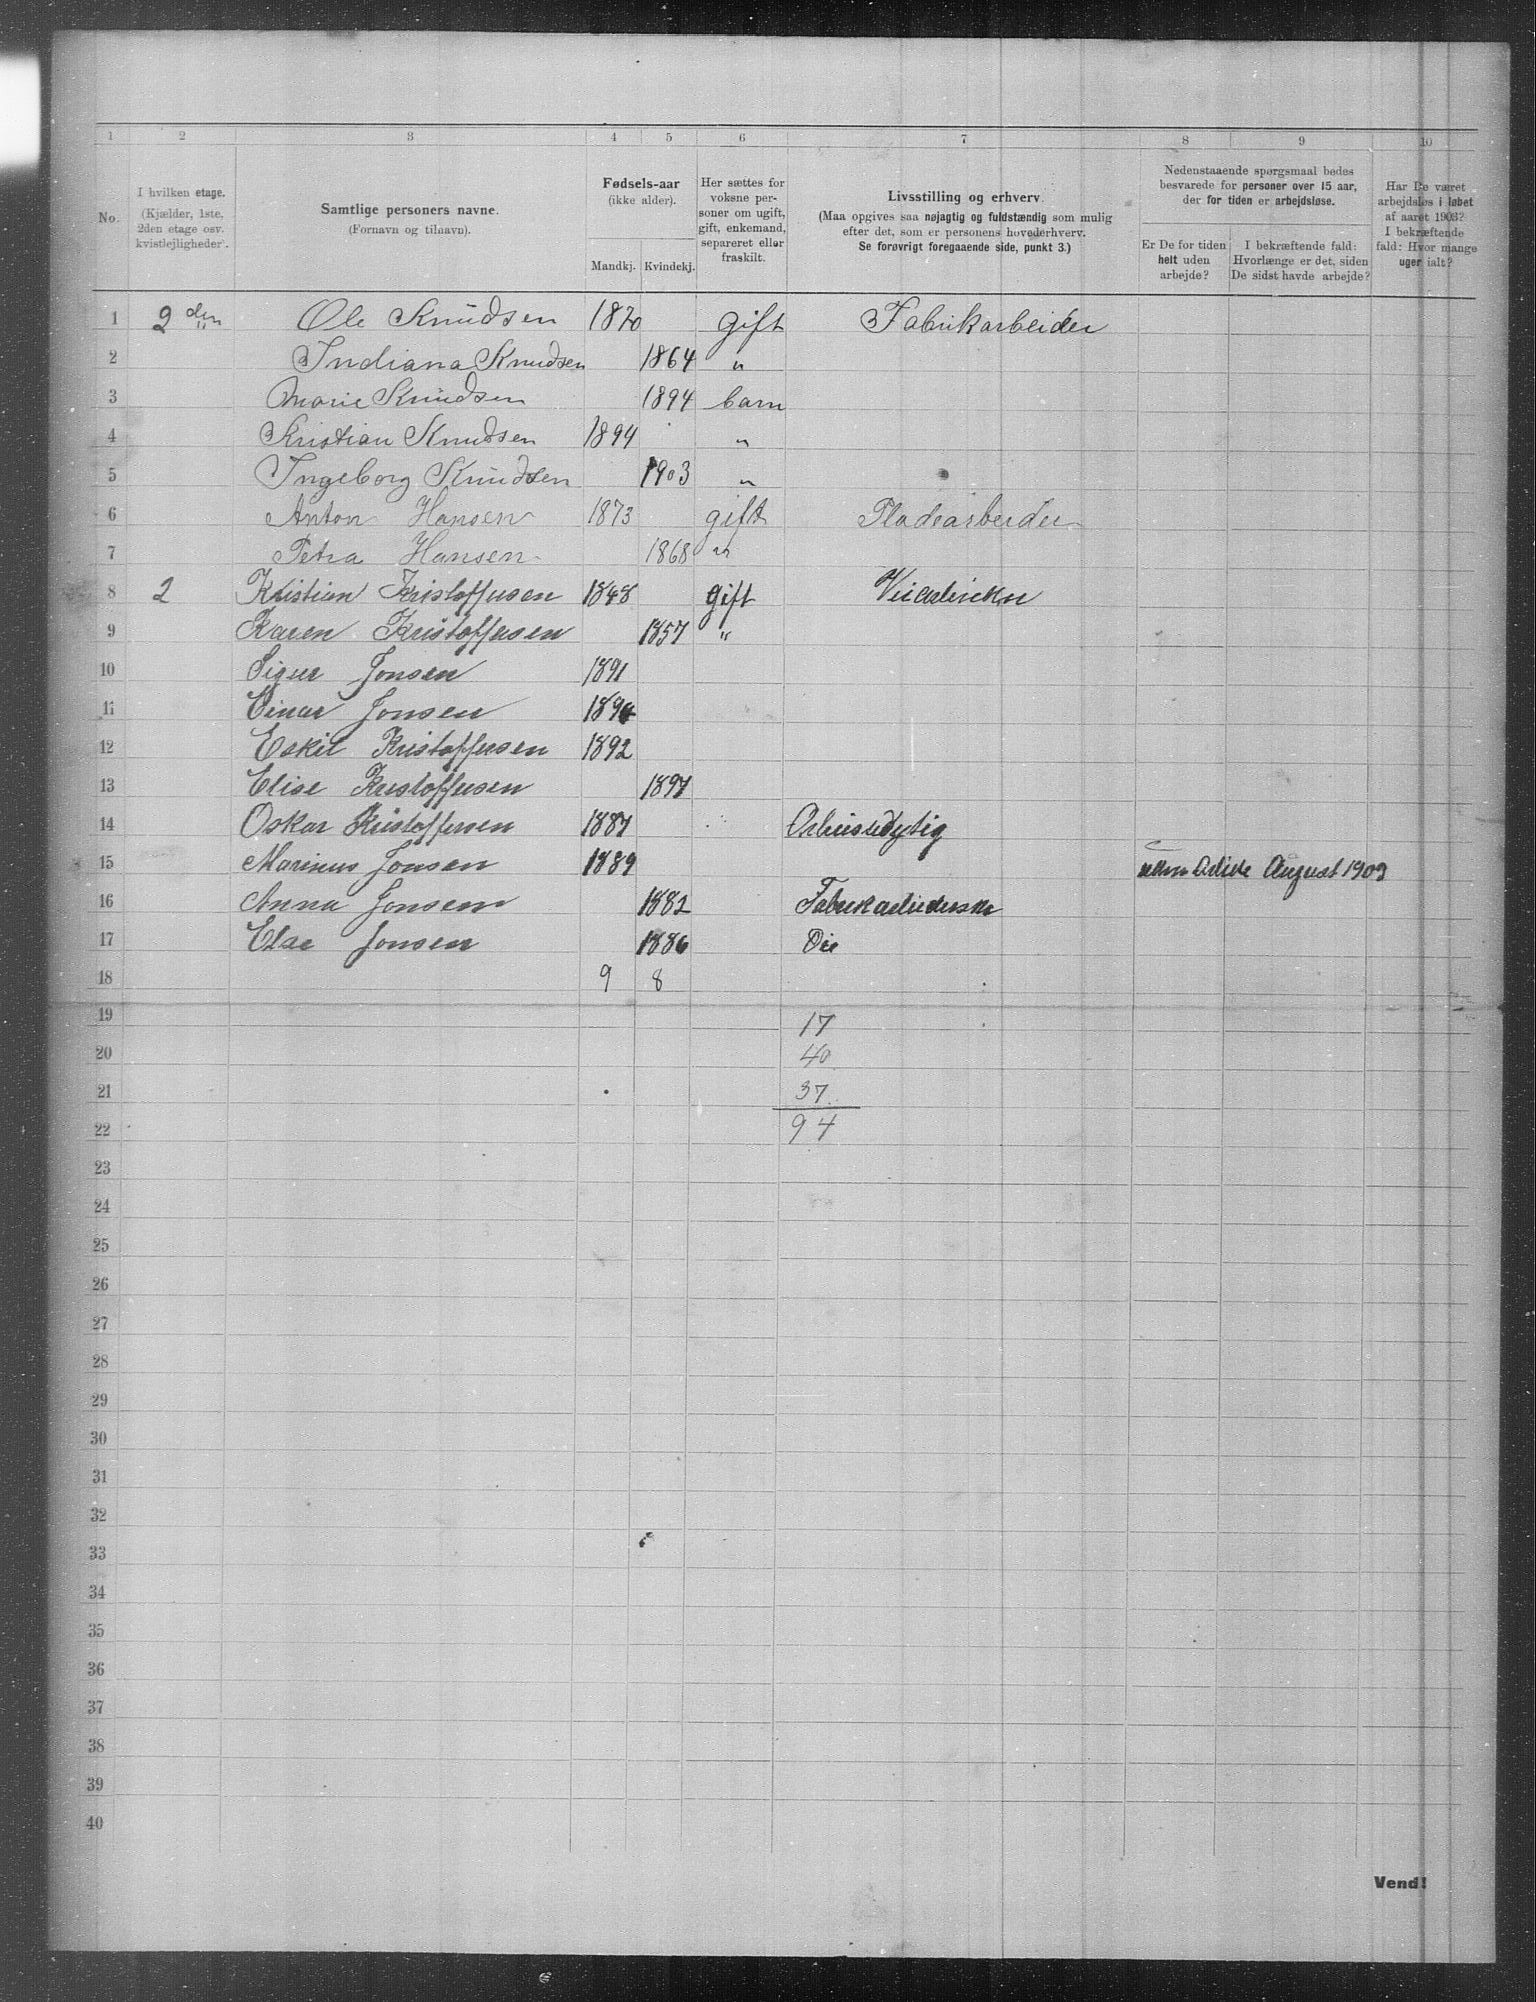 1 2 3 4 5 6 7 8 9 10
No.
I hvilken etage.
(Kjælder, 1ste,
2den etage osv.
kvistlejligheder).
Samtlige personers navne.
(Fornavn og tilnavn).
Fødsels-aar
(ikke alder).
Mandkj. Kvindekj.
Her sættes for
voksne per-
soner om ugift,
gift, enkemand,
separeret eller
fraskilt.
Livsstilling og erhverv.
(Maa opgives saa nøjagtig og fuldstændig som mulig
efter det, som er personens hovederhverv.
Se forøvrigt foregaaende side, punkt 3.)
Nedenstaaende spørgsmaal bedes
besvarede for personer over 15 aar,
der for tiden er arbejdsløse.
Er De for tiden
helt uden
arbejde?
I bekræftende fald:
Hvorlænge er det, siden
De sidst havde arbejde?
Har De været
arbejdsløs i løbet
af aaret 1903?
I bekræftende
fald: Hvor mange
uger ialt?
1 2den Ole Knudsen 1870 gift Fabrikarbeider
2 Indiana Knudsen 1864 "
3 Marie Knudsen 1894 barn
4 Kristian Knudsen 1894 "
5 Ingeborg Knudsen 1903 "
6 Anton Hansen 1873 gift Pladearbeider
7 Petra Hansen 1868 "
8 2 Kristian Kristoffersen 1848 gift
9 Karen Kristoffersen 1857 "
10 Sigur Jonsen 1891
11 Einar Jonsen
12 Eskil Kristoffersen 1892
13 Elise Kristoffersen 1897
14 Oskar Kristoffersen 1887
15 Marinus Jonsen 1889 August 1903
16 Anna Jonsen 1882 Fabrikarbeiderske
17 Else Jonsen 1886
18 9 8
19 17
20 40
21 37
22 94
23
24
25
26
27
28
29
30
31
32
33
34
35
36
37
38
39
40
Vend!